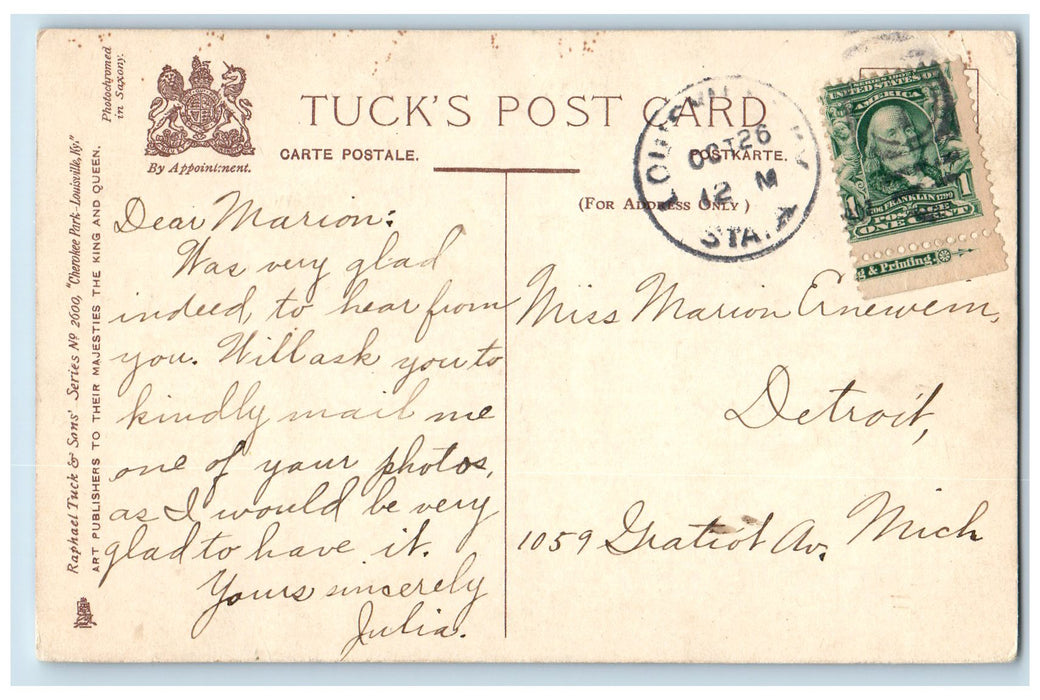 Photochromed
in Saxony.
By Appointment.
TUCK'S POST CARD
CARTE POSTALE.
POSTKARTE.
(FOR ADDRESS ONLY)
Raphael Tuck & Sons' Series Nº 2600, "Cherokee Park-Louisville, Ky."
ART PUBLISHERS TO THEIR MAJESTIES THE KING AND QUEEN.
OCT 26
12 M
STA. A
SERIES 1902
UNITED STATES OF
AMERICA
FRANKLIN
POSTAGE
ONE CENT
1
g & Printing.
Dear Marion:
Was very glad
indeed, to hear from
you. Will ask you to
kindly mail me
one of your photos,
as I would be very
glad to have it.
Yours sincerely
Julia.
Miss Marion Ernewein,
Detroit,
1059 Gratiot Av. Mich